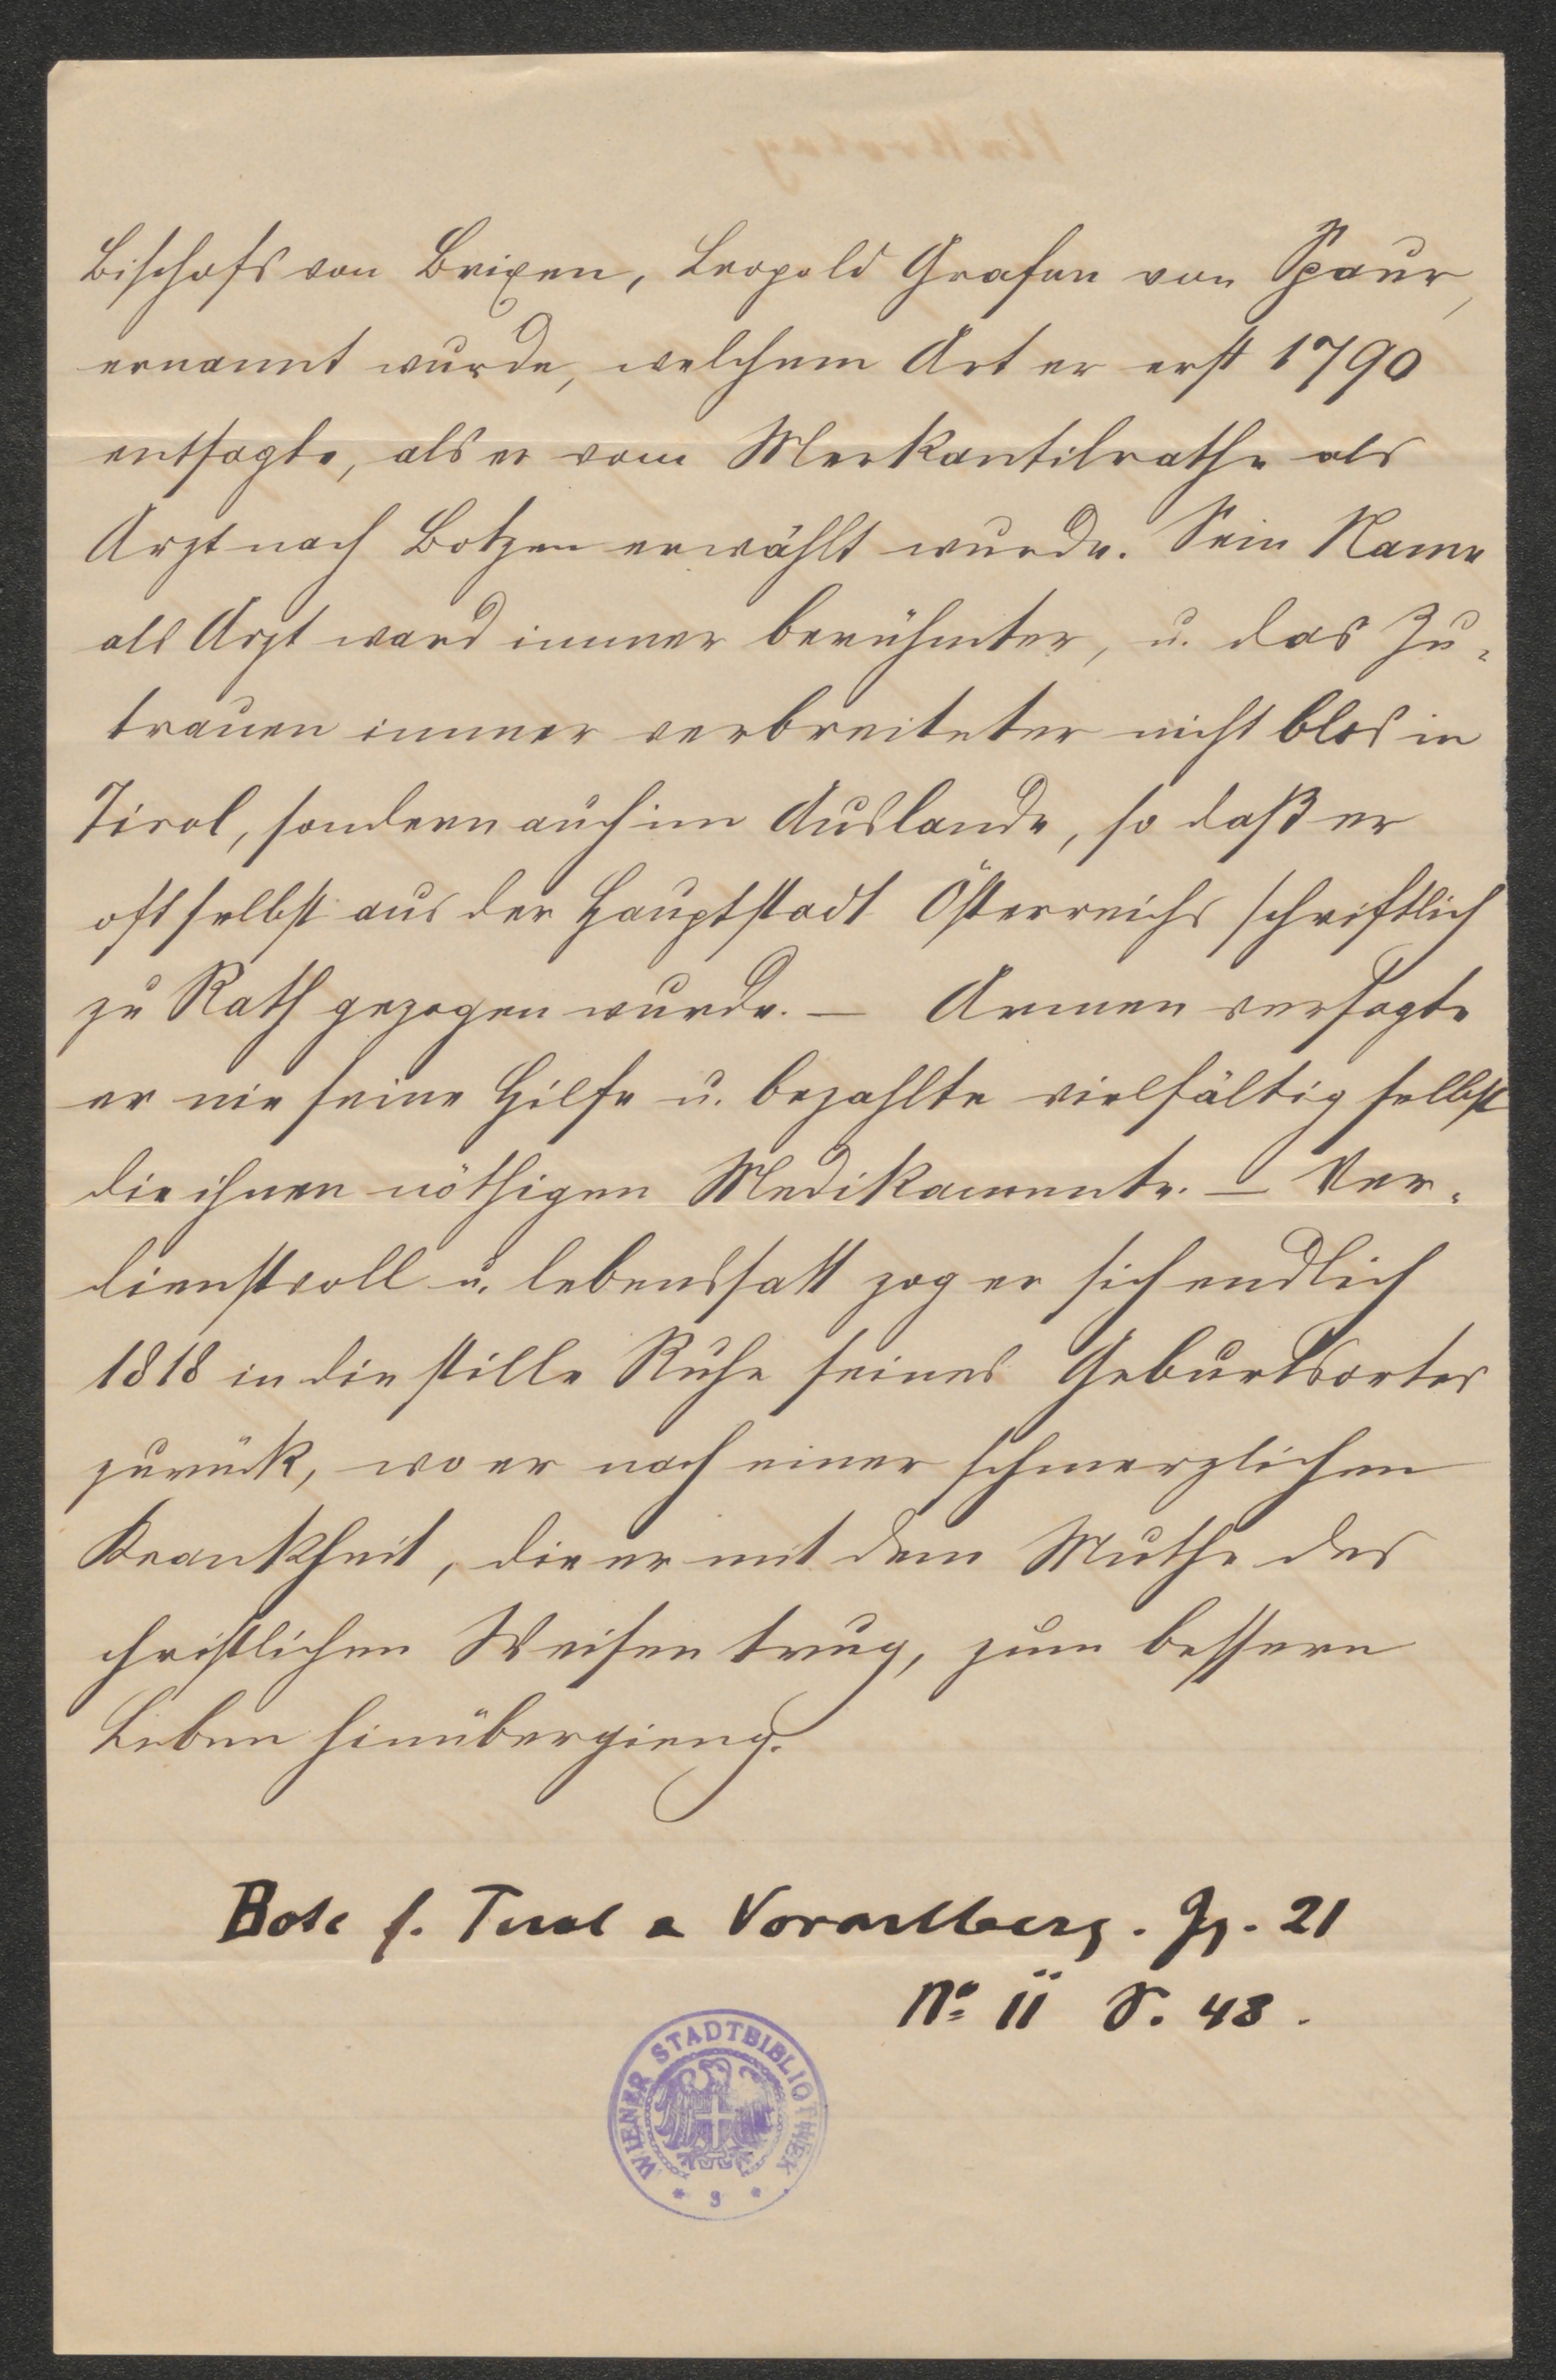 Bischofs von Brixen, Leopold Grafen von Spaur,
ernannt wurde, welchem Art er erst 1790
entsagte, als er vom Merkantilrathe als
Arzt nach Botzen erwählt wurde. Sein Name
als Arzt ward immer berühmter, u. das Zu-
trauen immer verbreiteter nicht blos in
Tirol, sondern auch im Auslande, so daß er
oft selbst aus der Hauptstadt Österreichs schriftlich
zu Rath gezogen wurde. — Armen versagte
er nie seine Hilfe u. bezahlte vielfältig selbst
die ihnen nöthigen Medikamente. — Ver-
dienstvoll u. lebenssatt zog er sich endlich
1818 in die stille Ruhe seines Geburtsortes
zurück, wo er nach einer schmerzlichen
Krankheit, die er mit dem Muthe des
christlichen Weisen trug, zum bessern
Leben hinübergieng.
Bote f. Tirol u Vorarlberg. Jg. 21
No 11 S. 48.
WIENER STADTBIBLIOTHEK